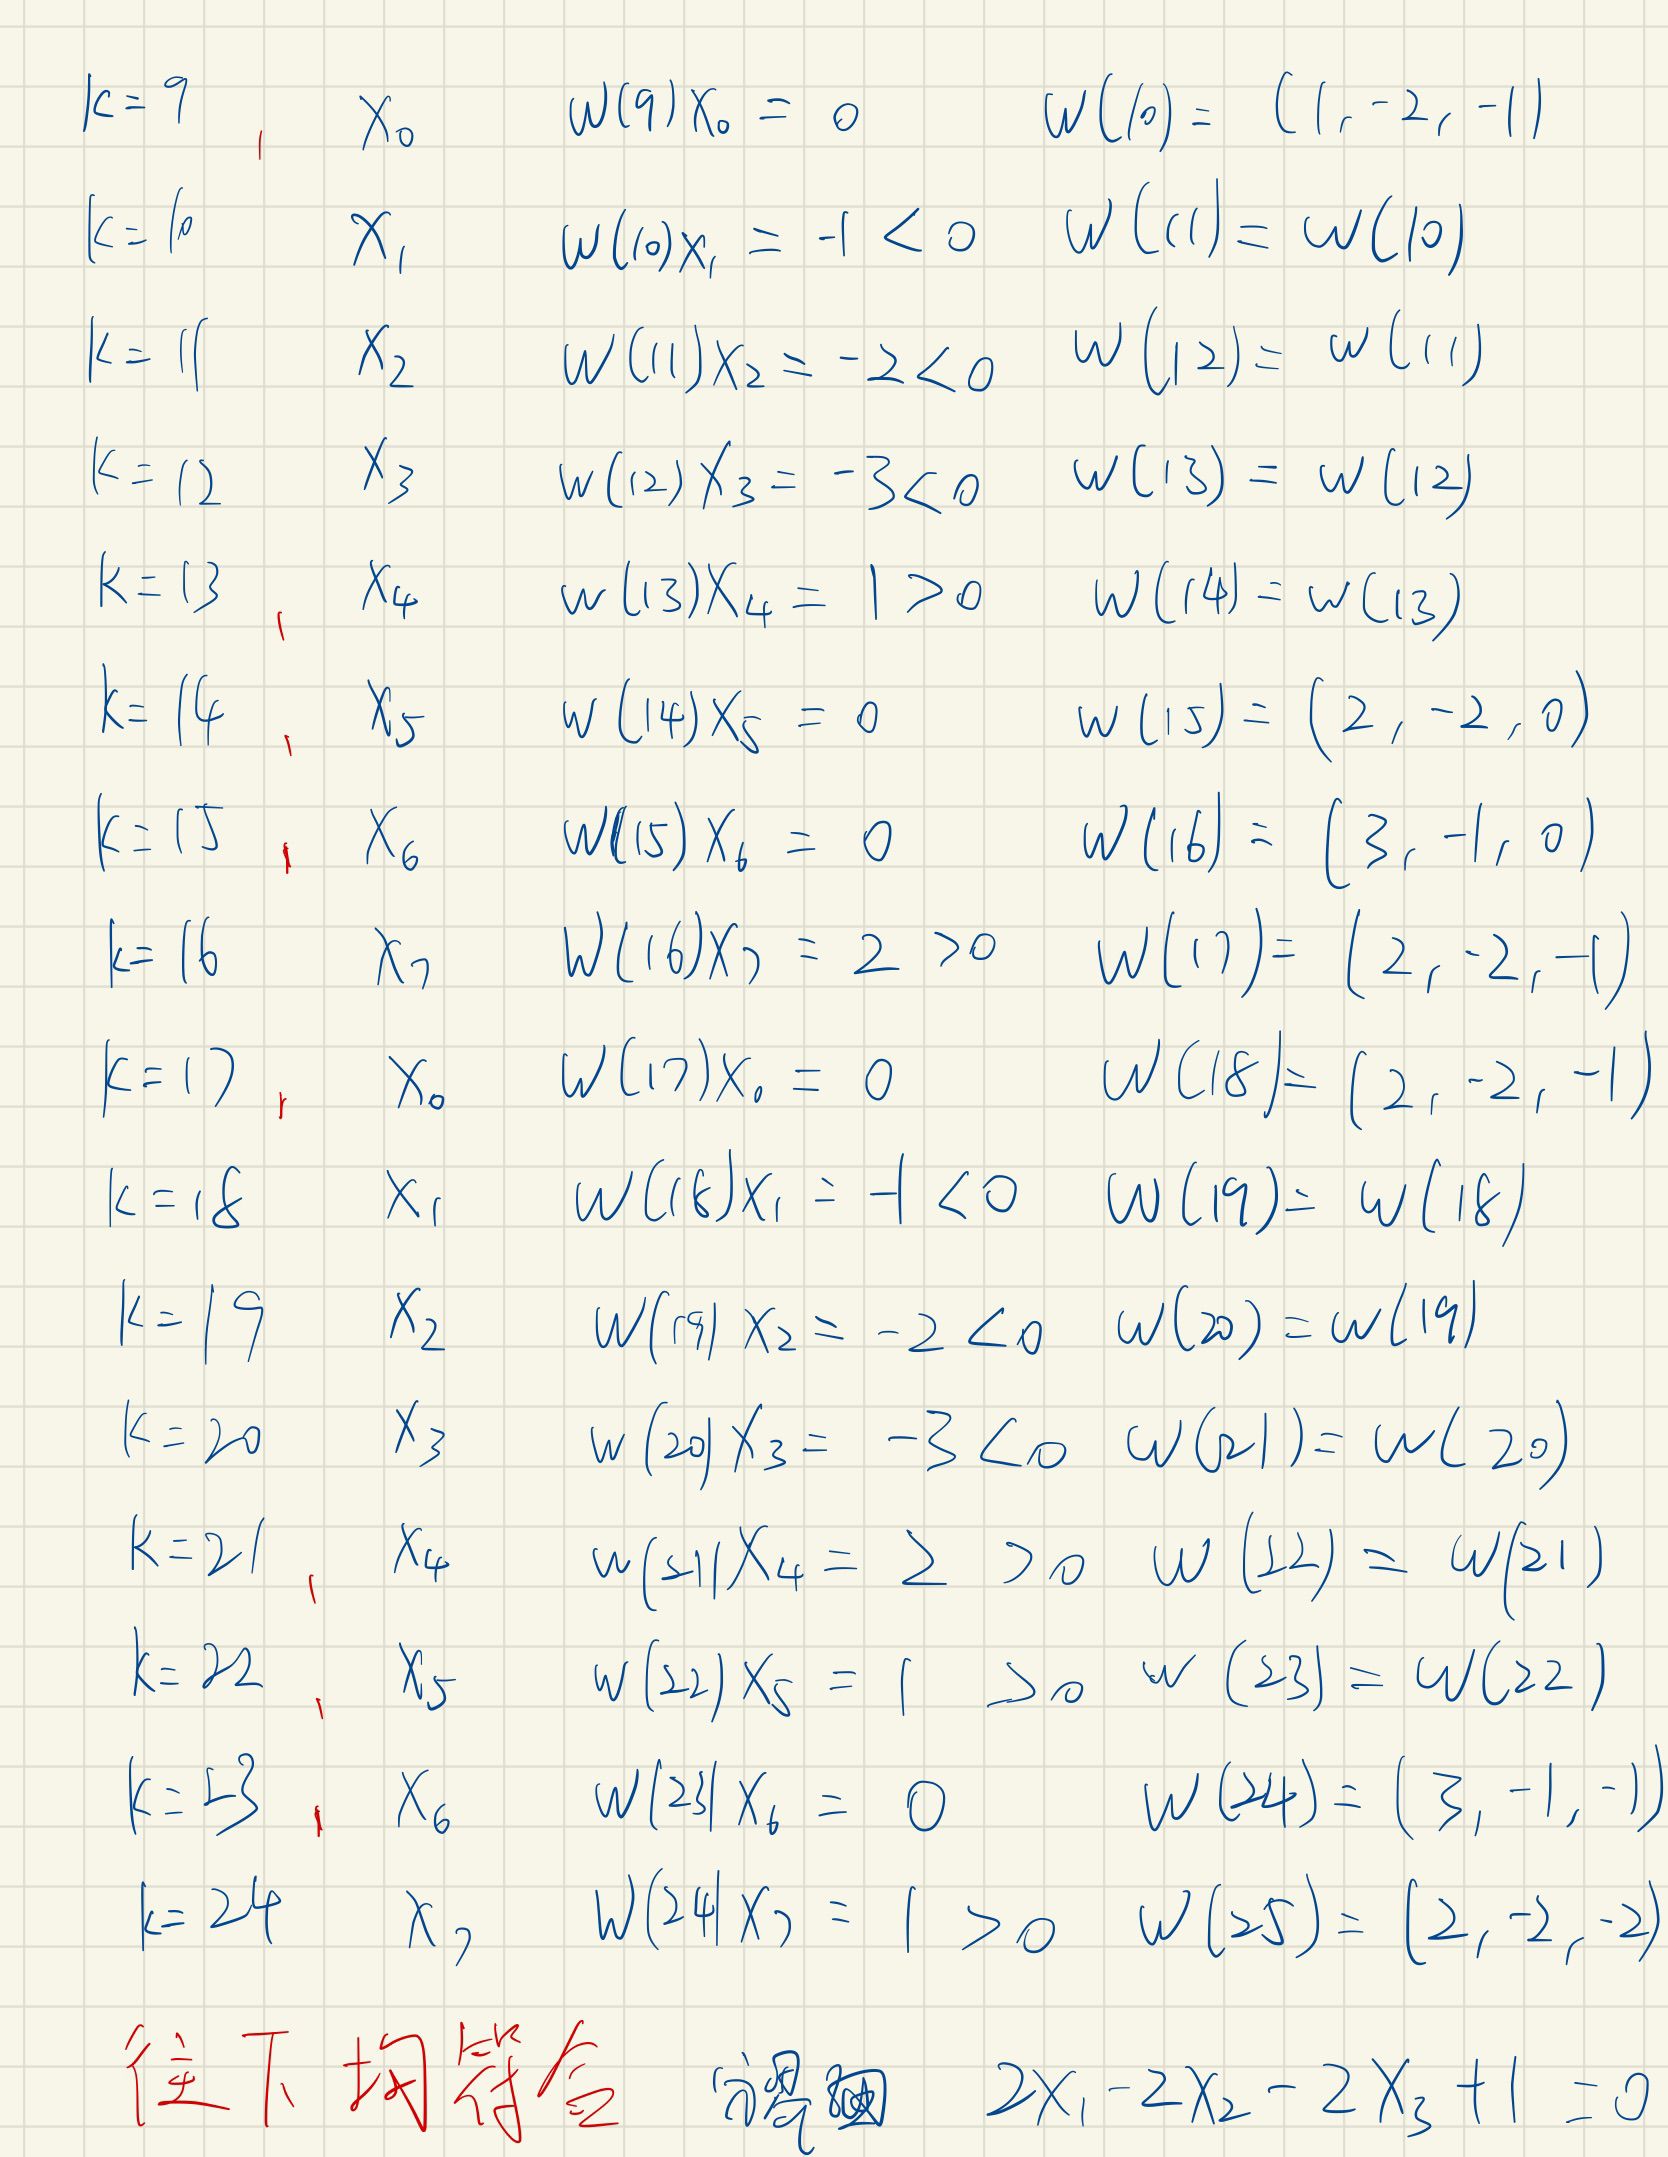 k=9 , X₀ W(9)X₀ = 0 W(10) = (1, -2, -1)
k=10 X₁ W(10)X₁ = -1 < 0 W(11) = W(10)
k=11 X₂ W(11)X₂ = -2 < 0 W(12) = W(11)
k=12 X₃ W(12)X₃ = -3 < 0 W(13) = W(12)
k=13 , X₄ W(13)X₄ = 1 > 0 W(14) = W(13)
k=14 , X₅ W(14)X₅ = 0 W(15) = (2, -2, 0)
k=15 , X₆ W(15)X₆ = 0 W(16) = (3, -1, 0)
k=16 X₇ W(16)X₇ = 2 > 0 W(17) = (2, -2, -1)
k=17 , X₀ W(17)X₀ = 0 W(18) = (2, -2, -1)
k=18 X₁ W(18)X₁ = -1 < 0 W(19) = W(18)
k=19 X₂ W(19)X₂ = -2 < 0 W(20) = W(19)
k=20 X₃ W(20)X₃ = -3 < 0 W(21) = W(20)
k=21 , X₄ W(21)X₄ = 2 > 0 W(22) = W(21)
k=22 , X₅ W(22)X₅ = 1 > 0 W(23) = W(22)
k=23 , X₆ W(23)X₆ = 0 W(24) = (3, -1, -1)
k=24 X₇ W(24)X₇ = 1 > 0 W(25) = (2, -2, -2)
往下均符合 2X₁-2X₂-2X₃+1=0